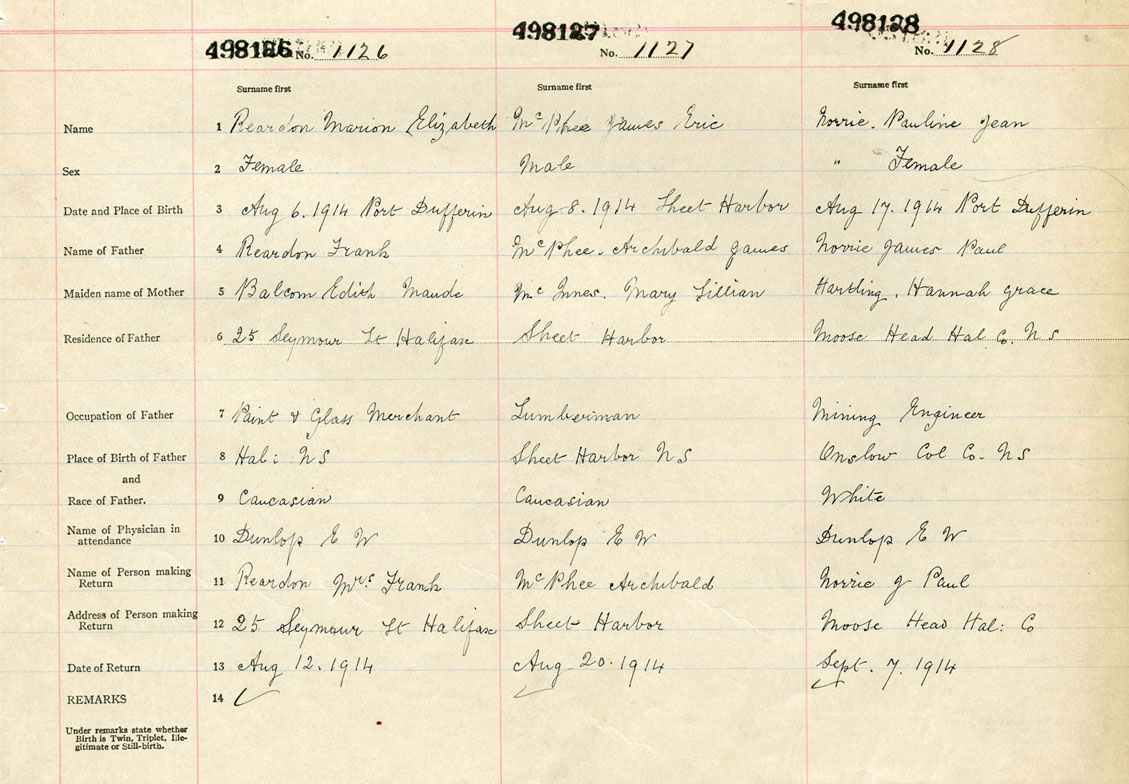 498126 No. 1126 498127 No. 1127 498128 No. 1128
Surname first Surname first Surname first
Name 1 Reardon Marion Elizabeth McPhee James Eric Norrie. Pauline Jean
Sex 2 Female Male " Female
Date and Place of Birth 3 Aug 6. 1914 Port Dufferin Aug 8. 1914 Sheet Harbor Aug 17. 1914 Port Dufferin
Name of Father 4 Reardon Frank McPhee. Archibald James Norrie James Paul
Maiden name of Mother 5 Balcom Edith Maude McInnes. Mary Lillian Hartling. Hannah Grace
Residence of Father 6 25 Seymour St Halifax Sheet Harbor Moose Head Hal Co. N S
Occupation of Father 7 Paint & Glass Merchant Lumberman Mining Engineer
Place of Birth of Father 8 Hal: N S Sheet Harbor N S Onslow Col Co. N S
and
Race of Father. 9 Caucasian Caucasian White
Name of Physician in
attendance 10 Dunlop E W Dunlop E W Dunlop E W
Name of Person making
Return 11 Reardon Mrs. Frank McPhee Archibald Norrie J Paul
Address of Person making
Return 12 25 Seymour St Halifax Sheet Harbor Moose Head Hal: Co
Date of Return 13 Aug 12. 1914 Aug 20. 1914 Sept. 7. 1914
REMARKS 14 ✓ ✓ ✓
Under remarks state whether
Birth is Twin, Triplet, Ille-
gitimate or Still-birth.